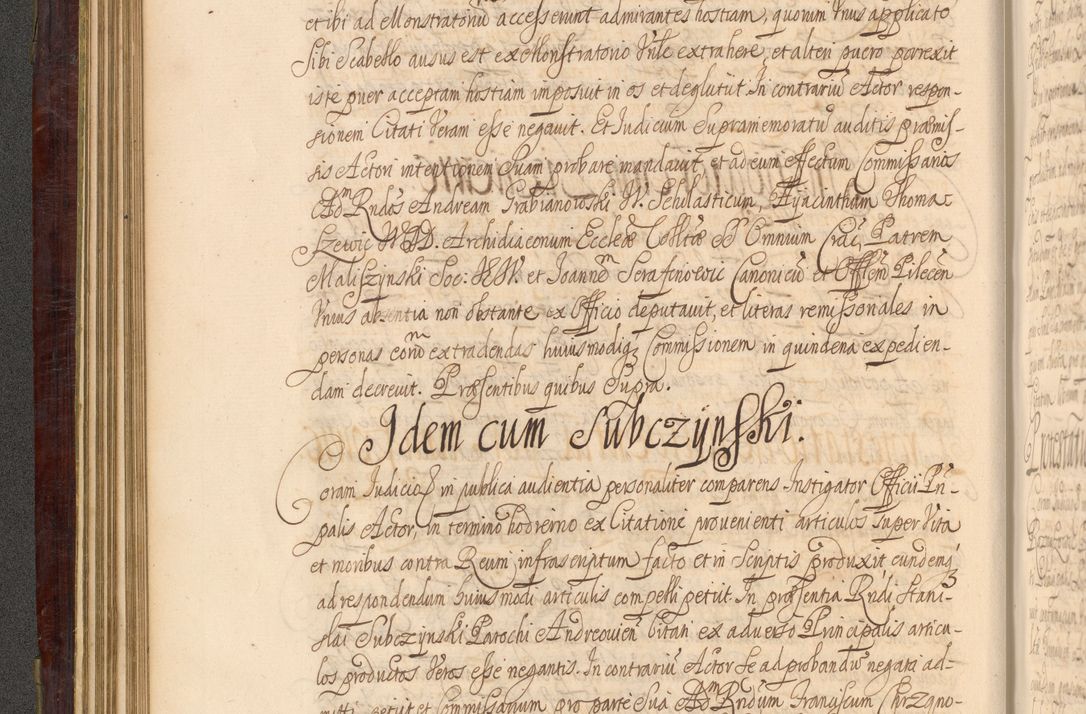 et ibi ad Monstratoriũ accesserunt admirantes hostiam, quorum Vnus applicato
Sibi Scabello ausus est ex Monstratorio Vitle extrahere, et alteri puero porrexit
iste puer acceptam hostiam imposuit in os et deglutiit. In contrariũ Actor respon-
sionem Citati Veram esse negauit. Et Iudicium Supramemoratũ auditis præmis-
sis Actori intentionem Suam probare mandauit, et ad eum effectum Commissarios
Adm Rndos Andream Grabianowski N. Scholasticum, Hyacintham Thomac
Szewic Archidiaconum Eccleæ Colltæ Omnium Patrem
Maliszynski Soc: et Ioannẽ Serafinowic Canonicũ et Offlem Pilecen
Vnius absentia non obstante ex Officio deputauit, et literas remissoriales in
personas eorũ extradendas huiusmodiq Commissionem in quindena expedien-
dam decreuit. Præsentibus quibus Supra.
Idem cum Subczÿnski.
Coram Iudicio in publica audientia personaliter comparens Instigator Officii Prin-
palis Actor, in termino hodierno ex Citatione prouenienti articulos Super Vita
et moribus contra Reum infrascriptum facto et in Scriptis produxit eundemq
ad respondendum huiusmodi articulis compelli petiit. In præsentia Rndi Stani-
slai Subczynski Parochi Andreouien Citati ex aduerso Principalis articu-
los productos Veros esse negantis. In contrariũ Actor se ad probandũ negata ad-
mitti petiit et Commissarium pro parte Sua Adm Rndum Franciscum Chrzono-